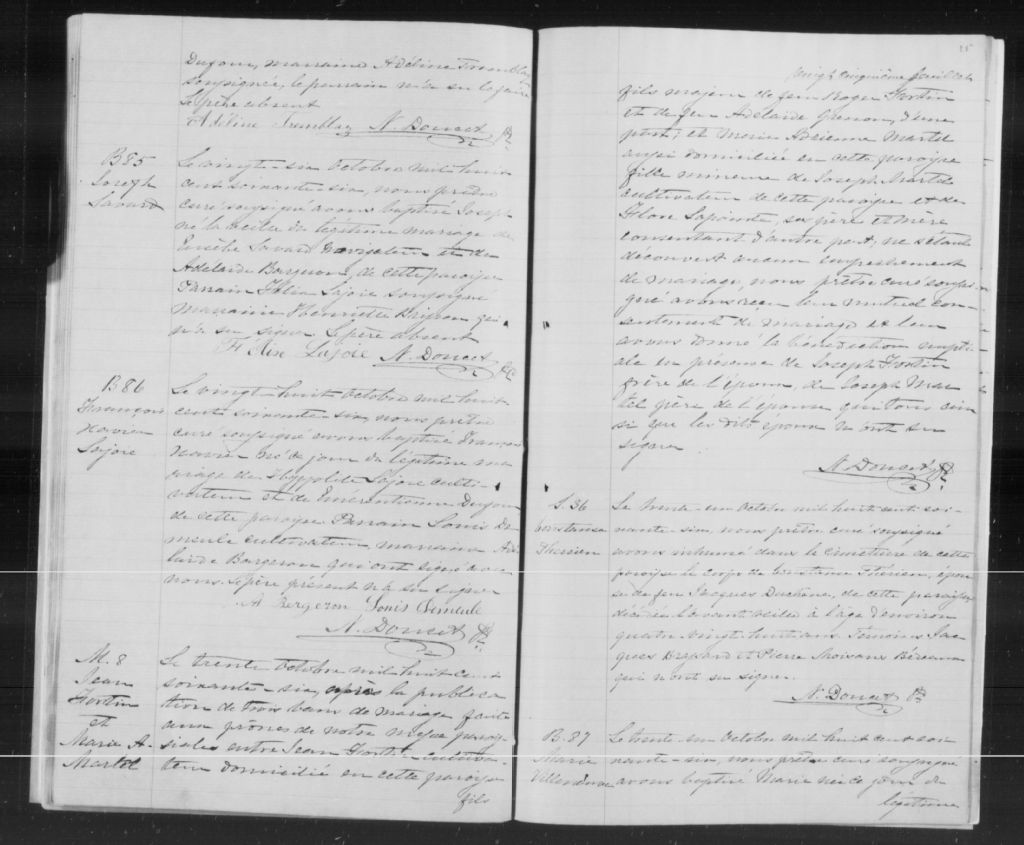 Dufour, marraine Adéline Tremblay
soussignée, le parrain n'a su le faire
Le père absent
Adéline Tremblay N. Doucet Ptr.
B 85
Joseph
Savard
Le vingt-six Octobre mil huit
cent soixante-six, nous prêtre
curé soussigné avons baptisé Joseph
né la veille du légitime mariage de
Eusèbe Savard navigateur et de
Adélaïde Bergeron, de cette paroisse
Parrain Félix Lajoie soussigné
Marraine Henriette qui
n'a su signer Le père absent
Félix Lajoie N. Doucet Ptr.
B 86
François
Xavier
Lajoie
Le vingt-huit Octobre mil huit
cent soixante-six, nous prêtre
curé soussigné avons baptisé François
Xavier né ce jour du légitime ma
riage de Hyppolite Lajoie culti-
vateur et de Emérentienne Dufour
de cette paroisse Parrain Louis De
meule cultivateur, marraine Adé
laïde Bergeron qui ont signé avec
nous. Le père présent n'a su signer
A Bergeron Louis Demeule
N. Doucet Ptr.
M. 8
Jean
Fortin
et
Marie A-
Martel
Le trente Octobre mil huit cent
soixante-six, après la publica
tion de trois bans de mariage faite
aux prônes de notre messe parois
siales entre Jean Fortin cultiva-
teur domicilié en cette paroisse
fils
vingt cinquième feuillet
fils majeur de feu Roger Fortin
et de feu Adélaïde Grenon, d'une
part; et Marie Adéième Martel
aussi domiciliée en cette paroisse
fille mineure de Joseph Martel
cultivateur de cette paroisse et de
Flore Lapointe, ses père et mère
consentant d'autre part; ne s'étant
découvert aucun empêchement
de mariage, nous prêtre curé soussi-
gné avons reçu leur mutuel con-
sentement de mariage et leur
avons donné la bénédiction nupti-
ale en présence de Joseph Fortin
frère de l'époux, de Joseph Mar
tel père de l'épouse qui tous ain
si que les dits époux n'ont su
signer
N. Doucet Ptr.
S. 36
Constance
Therien
Le trente-un Octobre mil huit cent soi-
xante-six, nous prêtre curé soussigné
avons inhumé dans le cimetière de cette
paroisse le corps de Constance Therien, épou
se de feu Jacques Duchêne, de cette paroisse
décédée l'avant veille à l'âge d'environ
quatre vingt huit ans Témoins Jac
ques Brassard et Pierre
qui n'ont su signer.
N. Doucet Ptr.
B. 87
Marie
Villeneuve
Le trente-un Octobre mil huit cent soi-
xante-six, nous prêtre curé soussigné
avons baptisé Marie née ce jour du
légitime